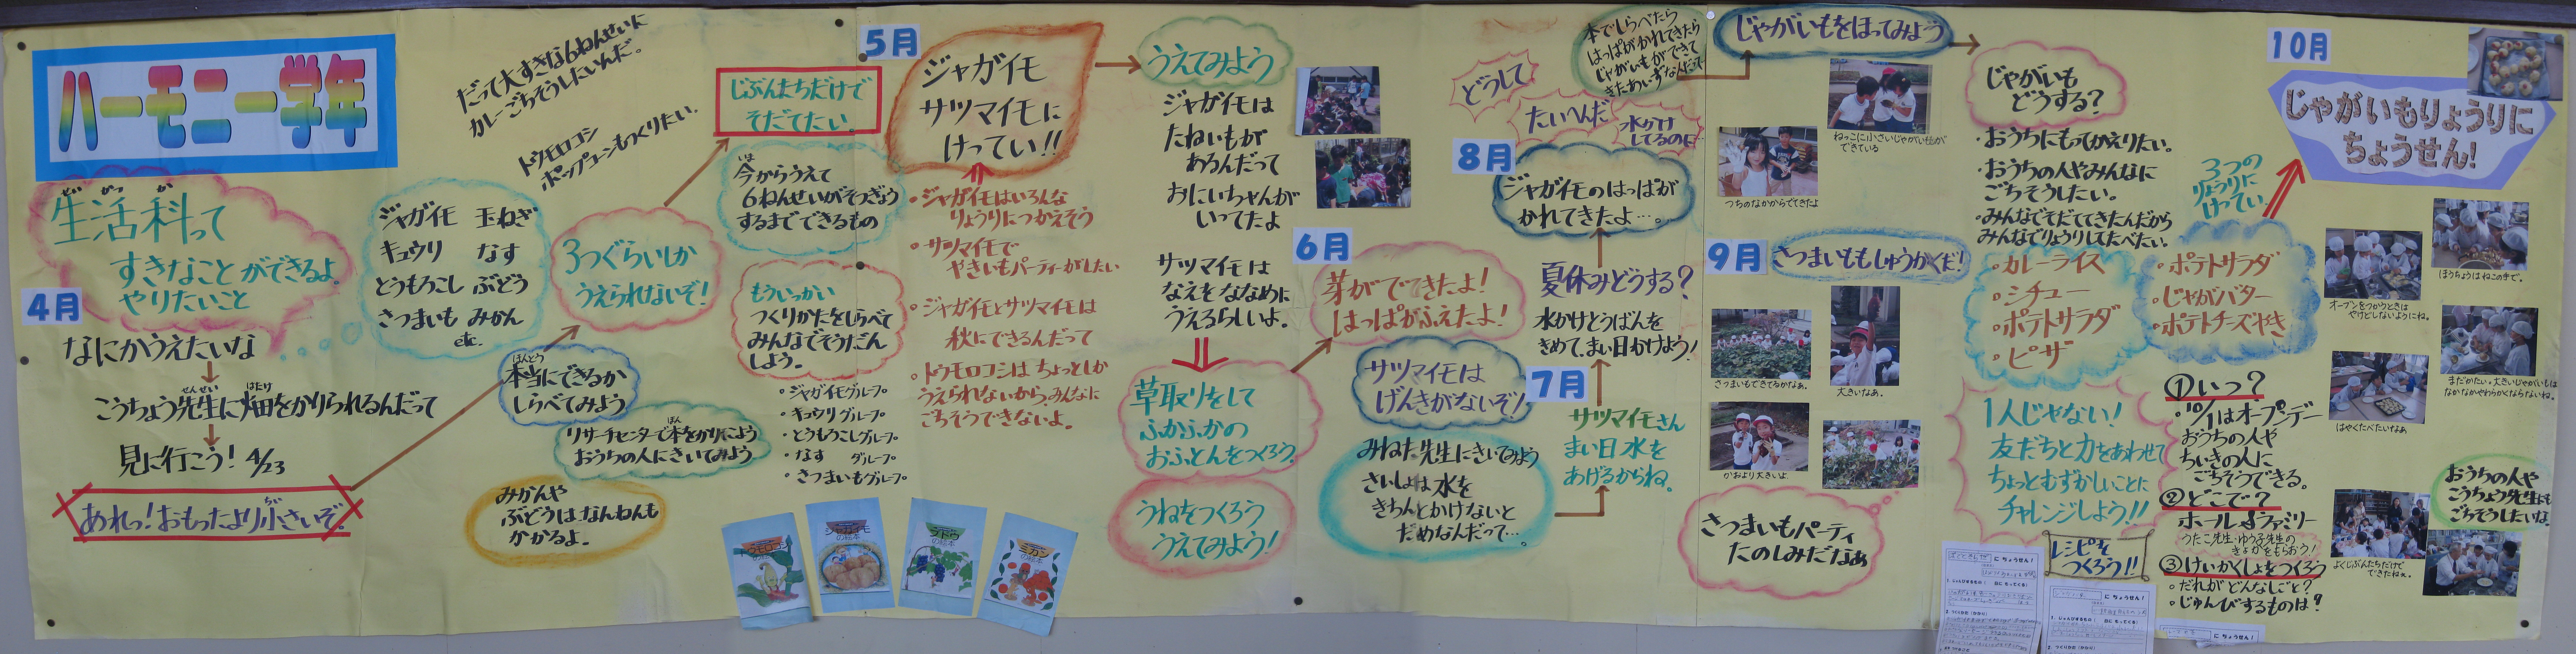 ハーモニー学年
生活科って
せいかつか
すきなことができるよ
やりたいこと
4月
なにかうえたいな
こうちょう先生に畑をかりられるんだって
せんせい
はたけ
見に行こう! 4/23
あれっ!おもったより小さいぞ。
ちい
だって大すきな6ねんせいに
カレーごちそうしたいんだ。
トウモロコシ
ポップコーンもつくりたい。
ジャガイモ 玉ねぎ
キュウリ なす
とうもろこし ぶどう
さつまいも みかん
etc.
本当にできるか
ほんとう
しらべてみよう
リサーチセンターで本をかりてこよう
ほん
おうちの人にきいてみよう
みかんや
ぶどうはなんねんも
かかるよ。
3つぐらいしか
うえられないぞ!
じぶんたちだけで
そだてたい。
今からうえて
いま
6ねんせいがそつぎょう
するまでできるもの
もういっかい
つくりかたをしらべて
みんなでそうだん
しよう。
・ジャガイモグループ
・キュウリグループ
・とうもろこしグループ
・なす グループ
・さつまいもグループ
トウモロコシ
ジャガイモ
の絵本
ブドウ
の絵本
ミカン
の絵本
5月
ジャガイモ
サツマイモに
けってい!!
・ジャガイモはいろんな
りょうりにつかえそう
・サツマイモで
やきいもパーティーがしたい
・ジャガイモとサツマイモは
秋にできるんだって
・トウモロコシはちょっとしか
うえられないから、みんなに
ごちそうできないよ。
うえてみよう
ジャガイモは
たねいもが
あるんだって
おにいちゃんが
いってたよ
サツマイモは
なえをななめに
うえるらしいよ。
草取りをして
ふかふかの
おふとんをつくろう。
うねをつくろう
うえてみよう!
6月
芽がでてきたよ!
はっぱがふえたよ!
サツマイモは
げんきがないぞ!
みねた先生にきいてみよう
さいしょは水を
きちんとかけないと
だめなんだって…。
7月
サツマイモさん
まい日水を
あげるからね。
夏休みどうする?
水かけとうばんを
きめて、まい日かけよう!
8月
ジャガイモのはっぱが
かれてきたよ…。
どうして
たいへんだ
水かけ
してるのに
本でしらべたら
はっぱがかれてきたら
じゃがいもができて
きたあいずなんだって
じゃがいもをほってみよう
つちのなかからでてきたよ
ねっこに小さいじゃがいもが
できている
9月
さつまいももしゅうかくだ!
さつまいもできてるかなぁ。
大きいなぁ。
かおより大きいよ
さつまいもパーティ
たのしみだなぁ
じゃがいも
どうする?
・おうちにもってかえりたい。
・おうちの人やみんなに
ごちそうしたい。
・みんなでそだててきたんだから
みんなでりょうりしてたべたい。
・カレーライス
・シチュー
・ポテトサラダ
・ピザ
1人じゃない!
友だちと力をあわせて
ちょっとむずかしいことに
チャレンジしよう!!
レシピを
つくろう!!
にちょうせん!
にちょうせん!
にちょうせん!
3つの
りょうりに
けってい
・ポテトサラダ
・じゃがバター
・ポテトチーズやき
①いつ?
・10/1はオープンデー
おうちの人や
ちいきの人に
ごちそうできる。
②どこで?
ホール&ファミリー
うたこ先生・ゆう子先生の
きょかをもらおう!
③けいかくしょをつくろう
・だれがどんなしごと?
・じゅんびするものは?
10月
じゃがいもりょうりに
ちょうせん!
ほうちょうはねこの手で。
オーブンをつかうときは
やけどしないようにね。
まだかたい。大きいじゃがいもは
なかなかやわらかくならないね。
はやくたべたいなぁ
おうちの人や
こうちょう先生にも
ごちそうしたいな。
よくじぶんたちだけで
できたねぇ。